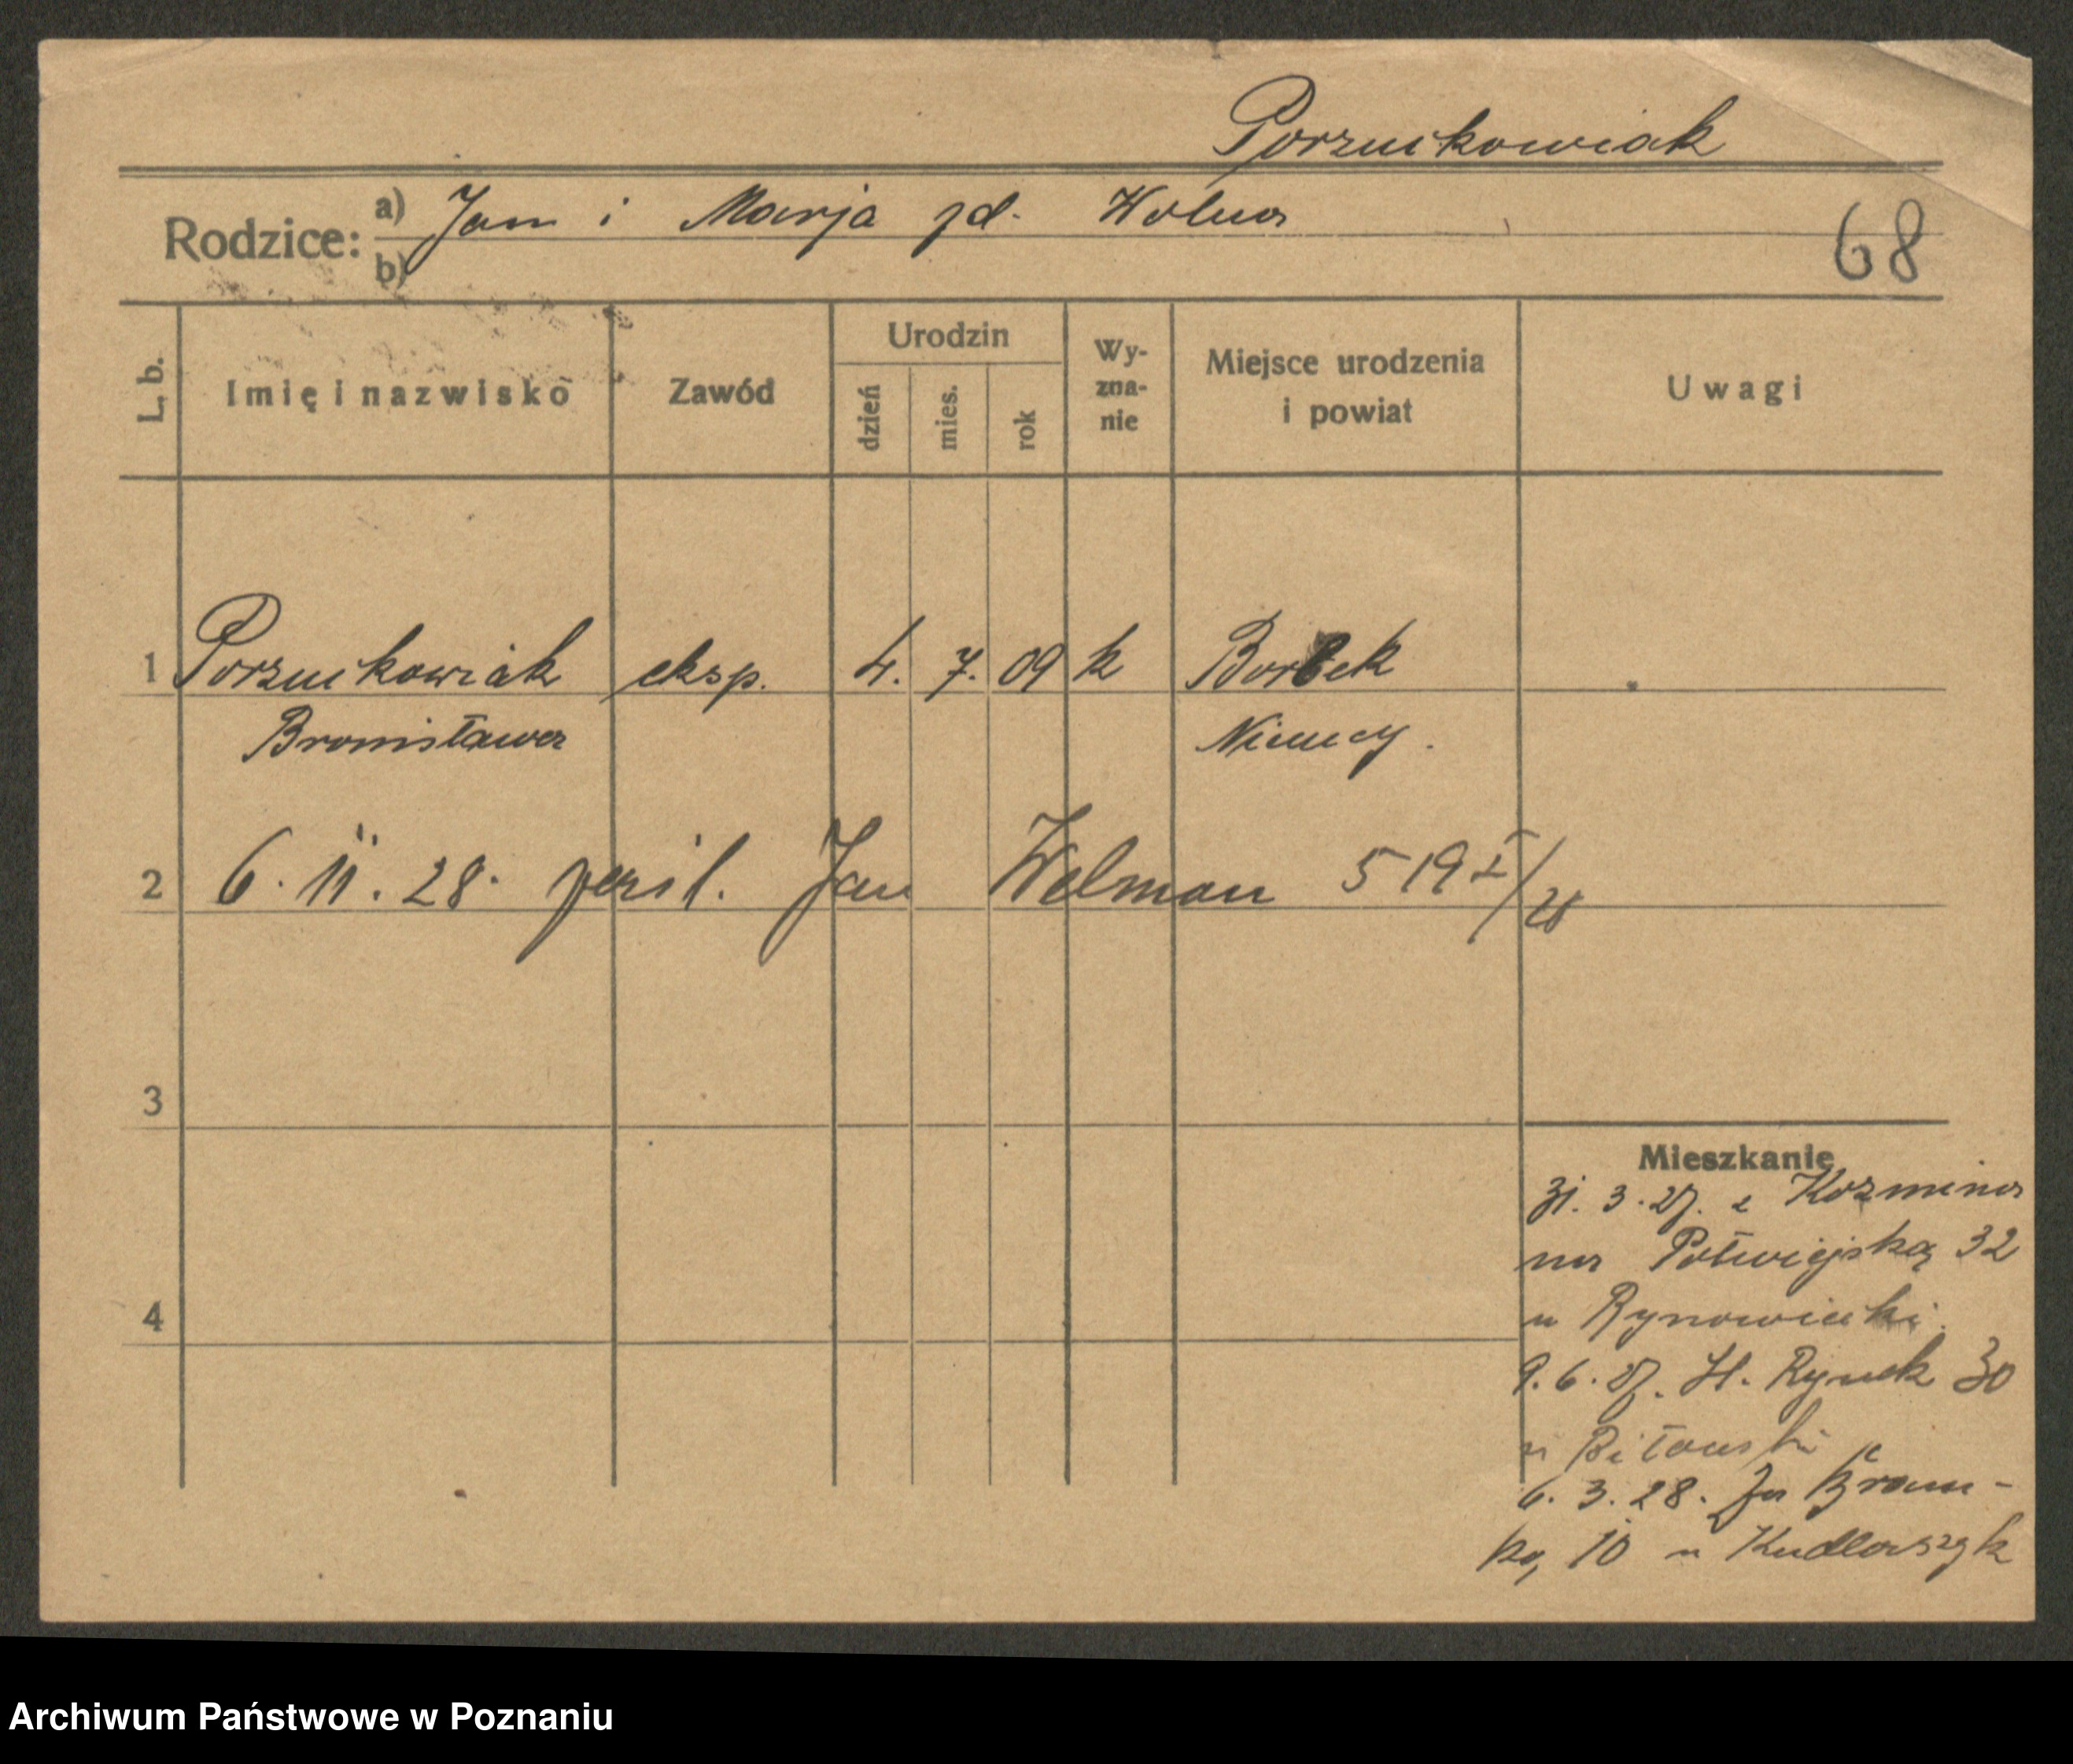 Porzuckowiak
Rodzice: a) Jan i Marja zd. Wolna
b)
68
L. b.
Imię i nazwisko
Zawód
Urodzin
dzień
mies.
rok
Wy-
zna-
nie
Miejsce urodzenia
i powiat
Uwagi
1 Porzuckowiak eksp. 4. 7. 09 k Borbek
Bronisława Niemcy.
2 6. 11. 28. Jan Welman 519 I/28
3
4
Mieszkanie
31. 3. 27. z Kozmina
na Półwiejską 32
u Rynowiecki.
9. 6. 27. St. Rynek 30
u Bitowski
6. 3. 28. Za Bram-
ką 10 u Kudlaszyk
Archiwum Państwowe w Poznaniu